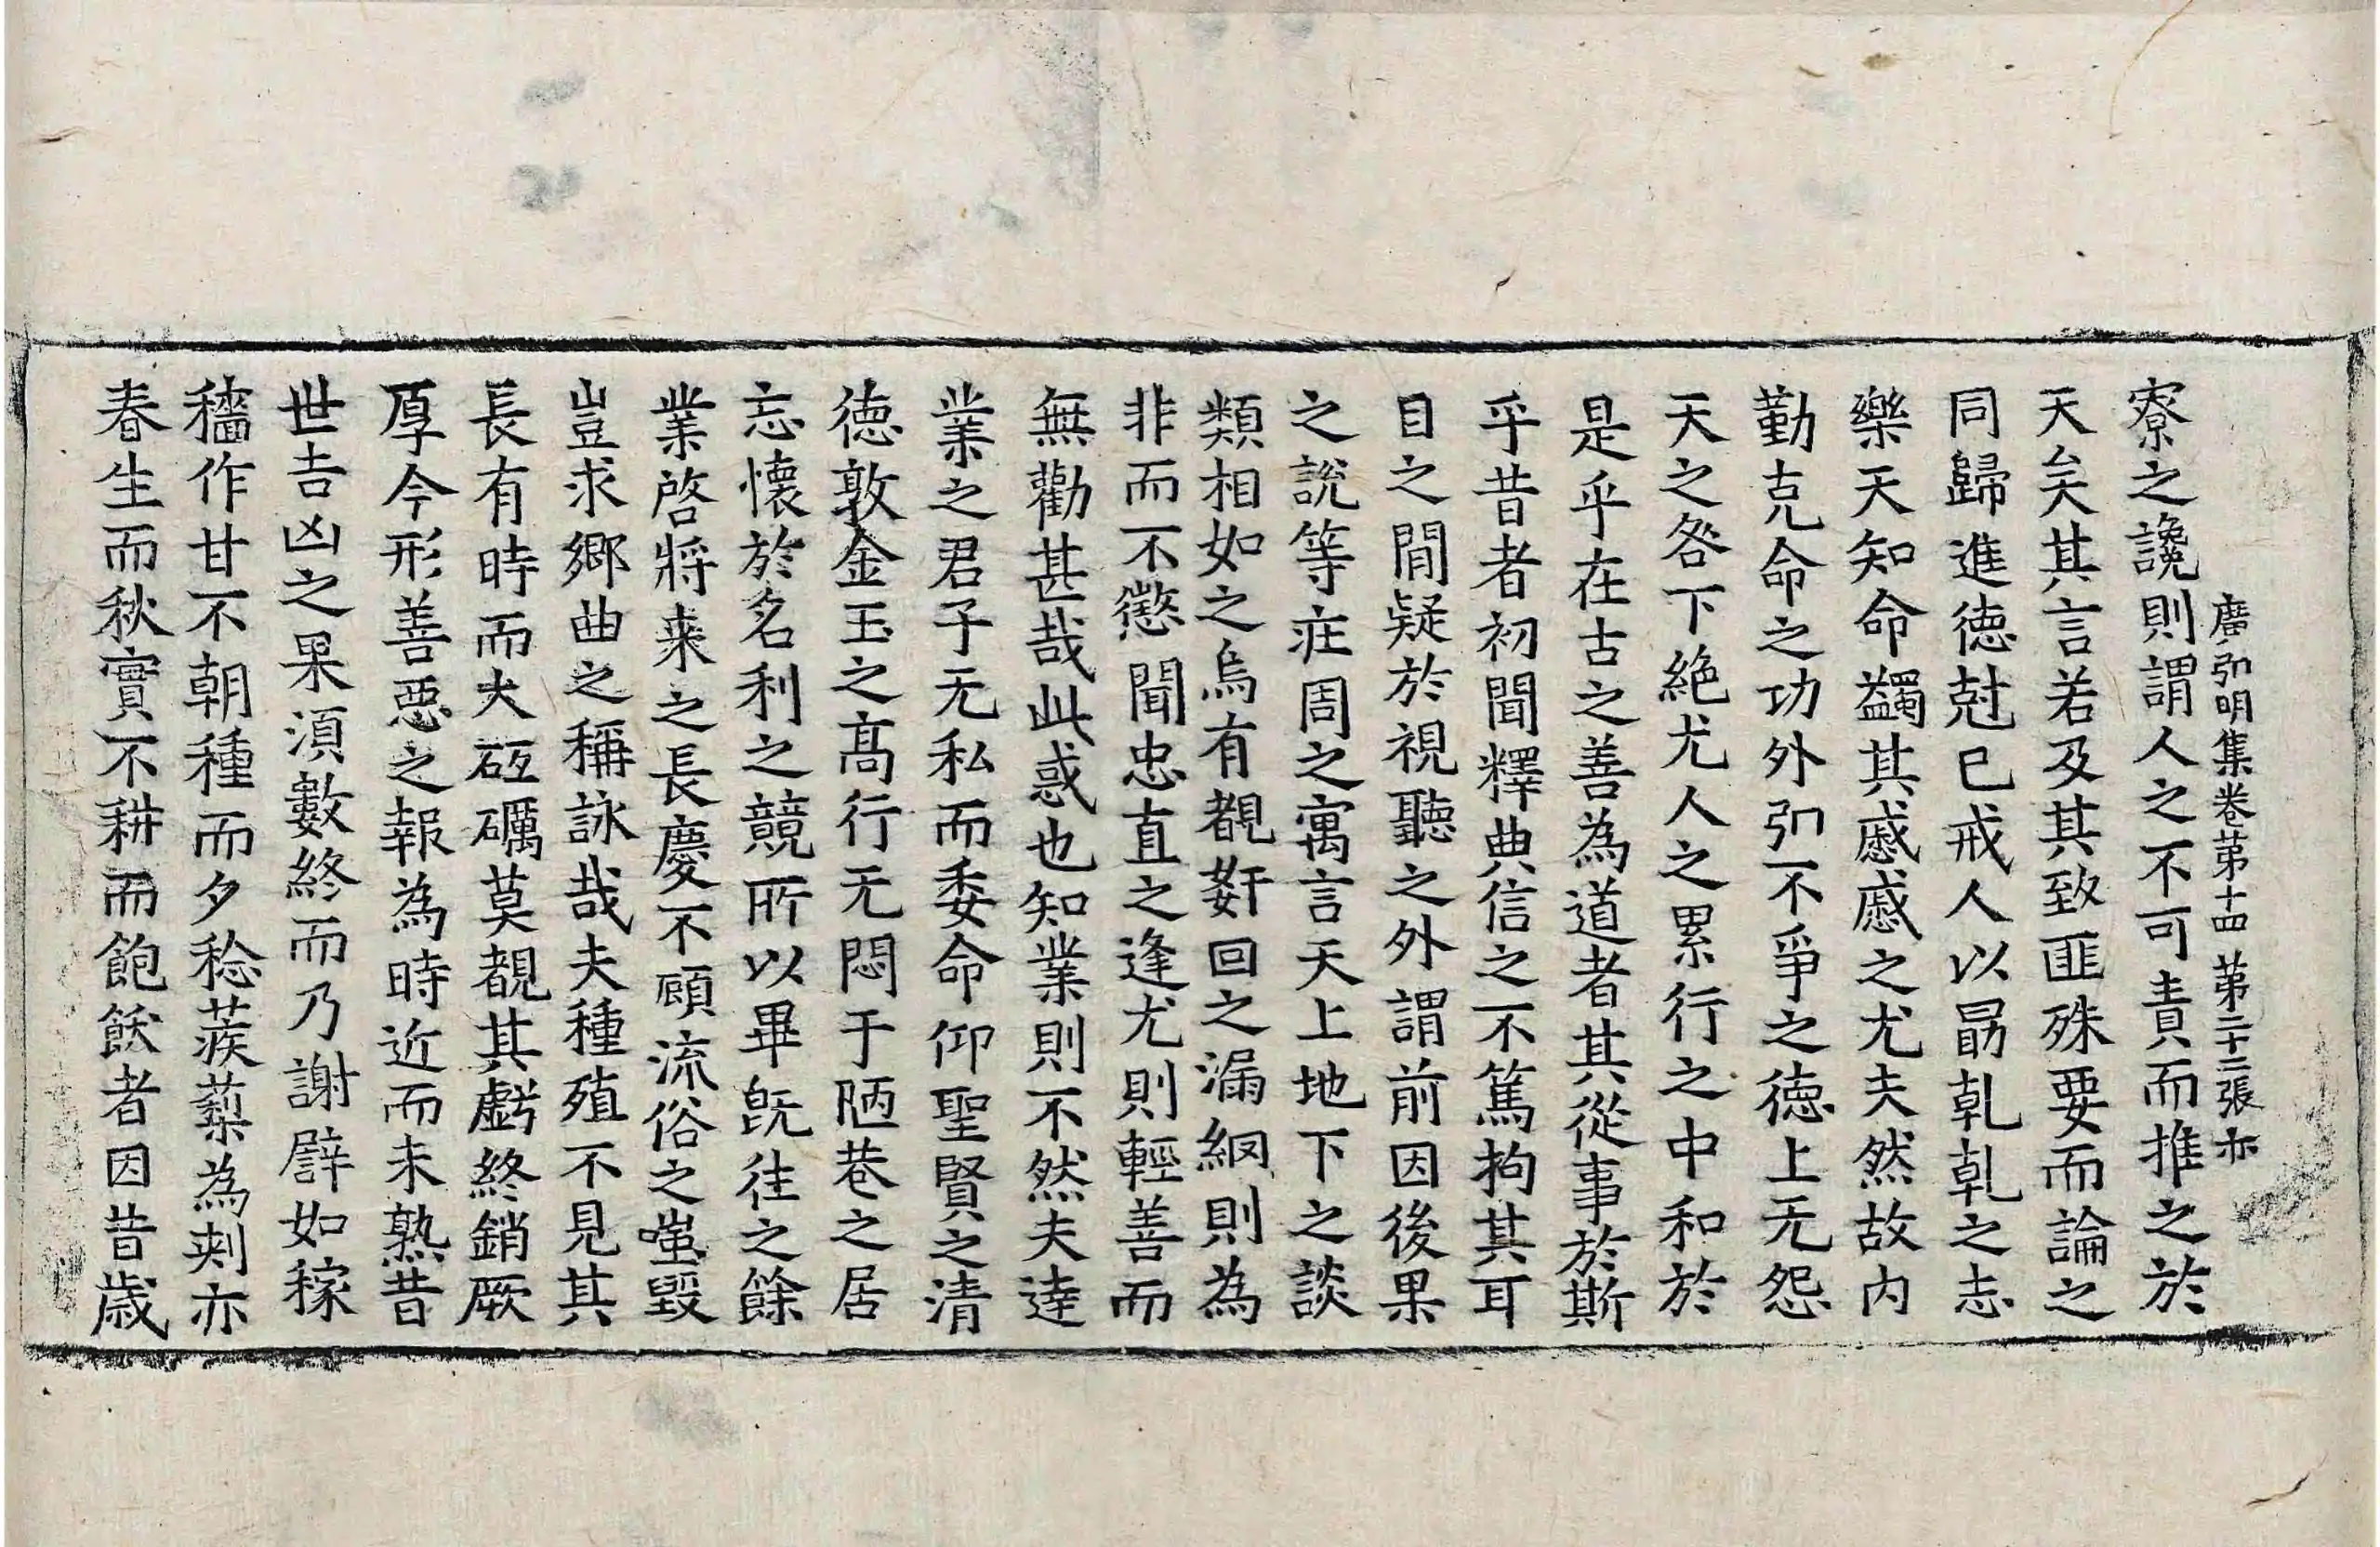 廣弘明集卷苐十四 苐二十三張 亦
寮之讒則謂人之不可責而推之於
天矣其言若及其致匪殊要而論之
同歸進徳尅己戒人以勗乹乹之志
樂天知命蠲其慼慼之尤夫然故内
勤克命之功外弘不爭之徳上无怨
天之咎下絶尤人之累行之中和於
是乎在古之善為道者其從事於斯
乎昔者初聞釋典信之不篤拘其耳
目之間疑於視聽之外謂前因後果
之說等庄周之寓言天上地下之談
類相如之烏有覩姧回之漏網則為
非而不懲聞忠直之逢尤則輕善而
無勸甚哉此惑也知業則不然夫達
業之君子无私而委命仰聖賢之清
徳敦金玉之高行无悶于陋巷之居
忘懷於名利之競所以畢旣往之餘
業啓將来之長慶不顧流俗之嗤毀
豈求鄉曲之稱詠哉夫種殖不見其
長有時而大砥礪莫覩其虧終銷厥
厚今形善惡之報為時近而未熟昔
世吉凶之果湏數終而乃謝譬如稼
穡作甘不朝種而夕稔蒺蔾為刾亦
春生而秋實不耕而飽飫者因昔歳